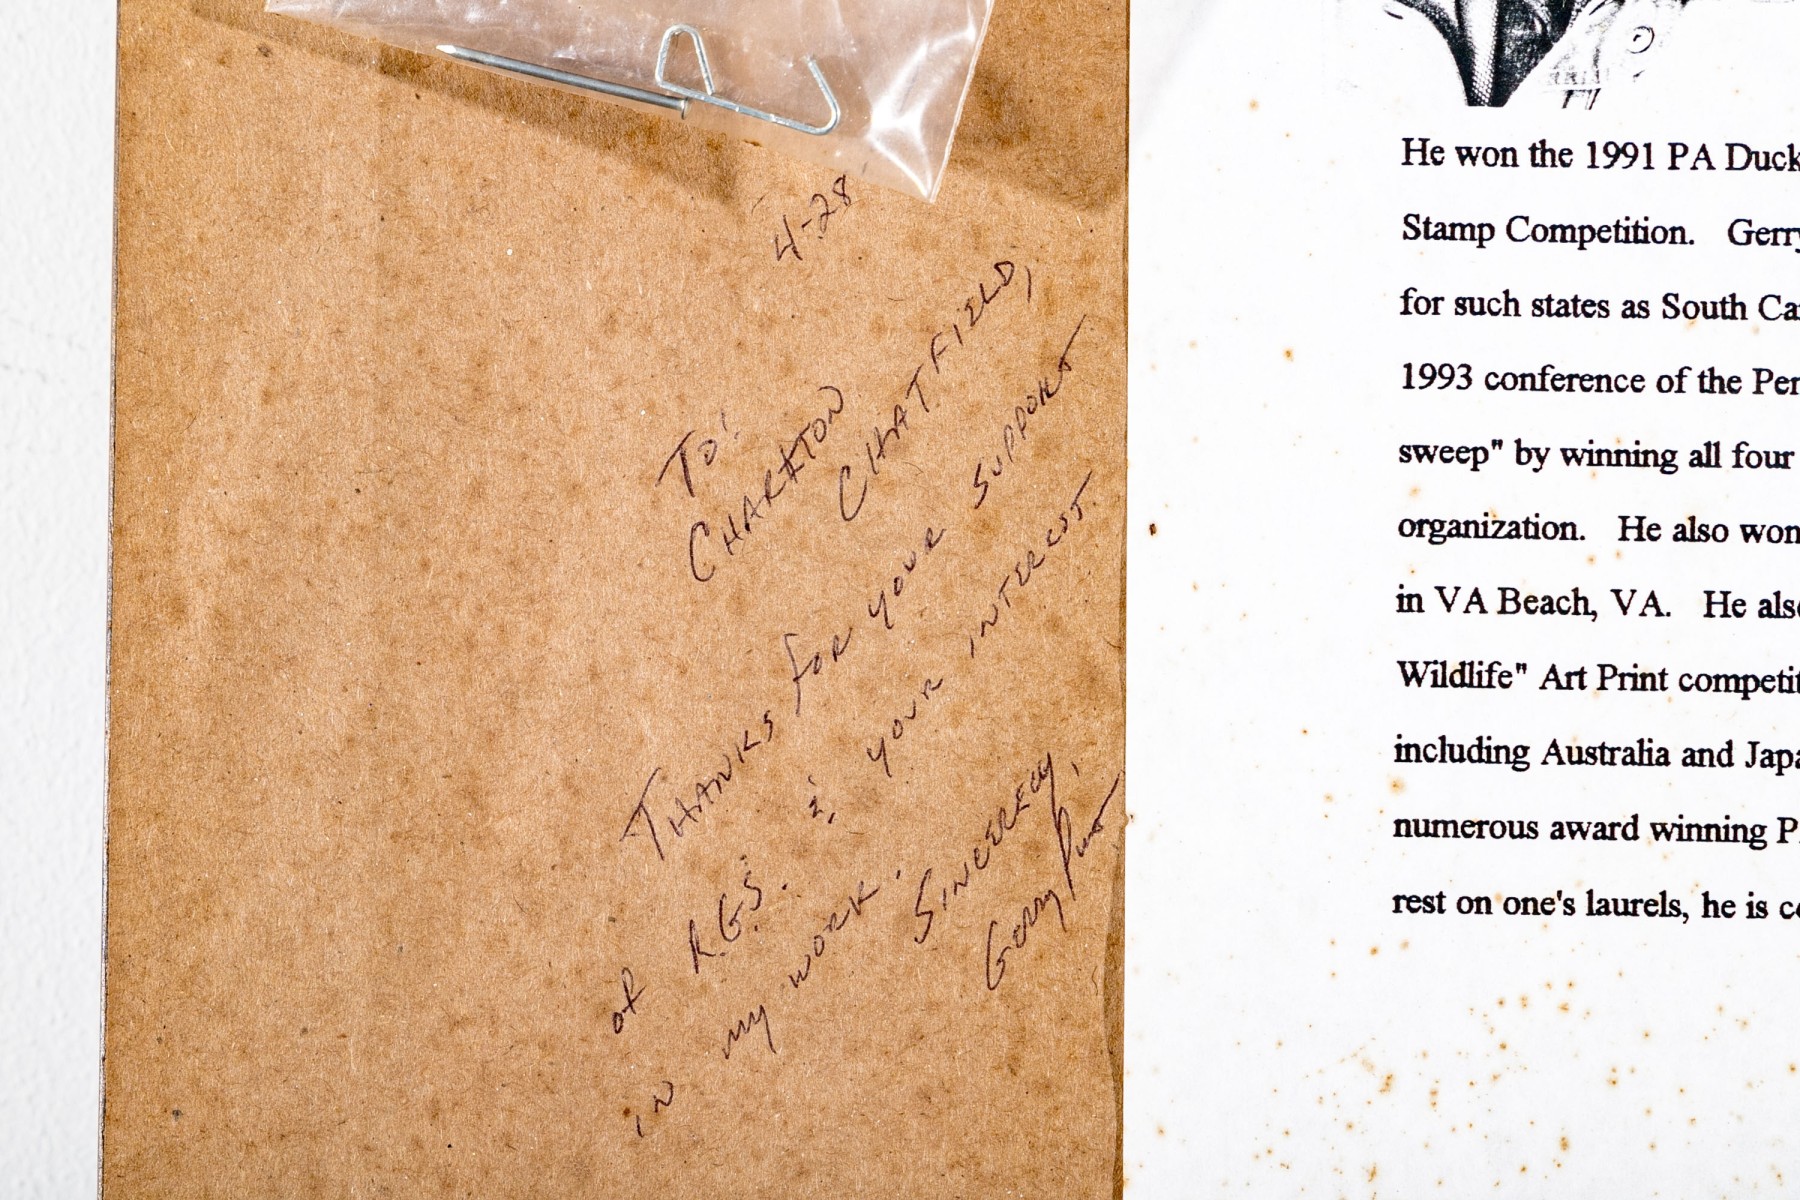 4-28
TO:
CHARLTON
CHATFIELD,
THANKS FOR YOUR SUPPORT
of R.G.S. & YOUR INTEREST.
IN MY WORK.
SINCERELY,
Gerry Putt
He won the 1991 PA Duck
Stamp Competition. Gerry
for such states as South Ca
1993 conference of the Pen
sweep" by winning all four
organization. He also won
in VA Beach, VA. He also
Wildlife" Art Print competit
including Australia and Japa
numerous award winning P
rest on one's laurels, he is co